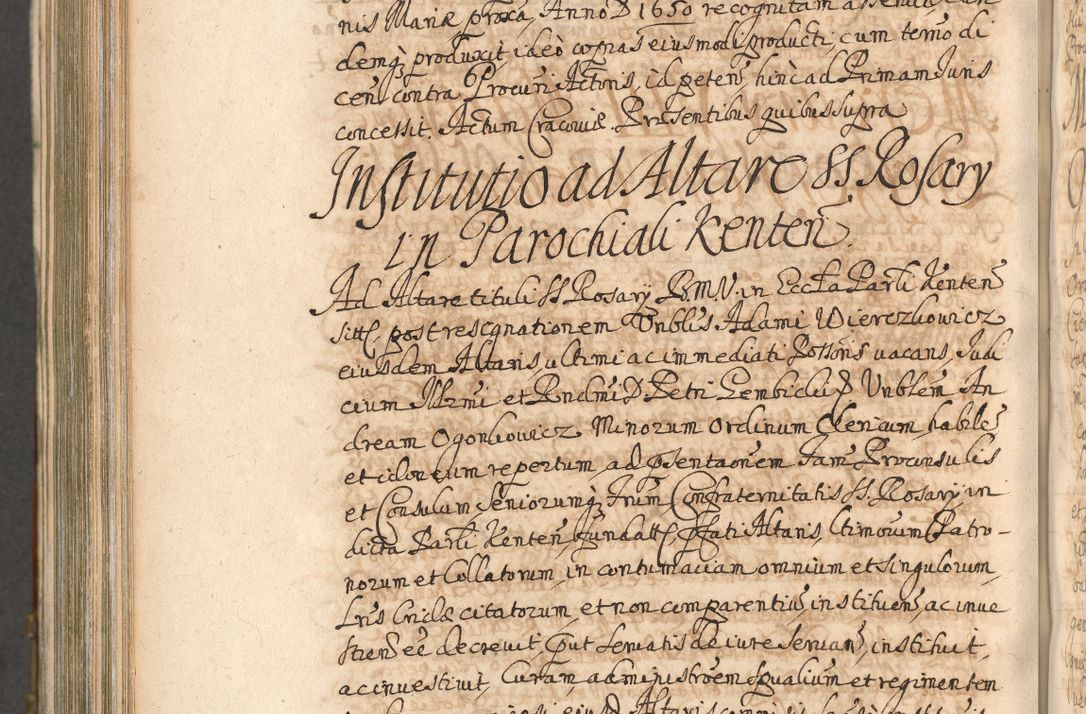 nis Mariæ proxa, Anno D 1650 recognitam
demq̃ produxit, ideo copias eiusmodi producti, cum termo di
cen̄ contra Procur̃i Actoris, id peten̄, hinc ad Primam Iuris
concessit. Actum Cracoviæ. Præsentibus quibus supra
Institutio ad Altare SS. Rosary
in Parochiali Kenten̄.
Ad Altare tituli SS. Rosary B. M. V. in Eccl̃a Parl̃i Kenten̄
sitt̃, post resignationem Vnbl̃is Adami Wierczkowicz
eiusdem Altaris, ultimi ac immediati Possoris vacans, Judi
cium Ill̃rmi et Rndmi D Petri Gembicki D Vnblem̃ An
dream Ogonkowicz Minorum Ordinum Clericum, habilē
et idoneum repertum ad p̃sentaõnem Fam̃ Proconsulis
et Consulum Seniorumq̃ Frum̃ Confraternitatis SS. Rosary, in
dicta Parl̃i Kenten̄, fundatt̃, p̃fati Altaris, l̃timorum Patro-
norum et Collatorum, in contumaciam omnium et singulorum,
Lr̃is Cridæ citatorum, et non comparentiũ, instituen̄, ac inve
stien̄ ee decrevit, Prout servatis de iure servan̄, instituit,
ac investivit, Curam, administr̃oem Sp̃ualium et regimen tem